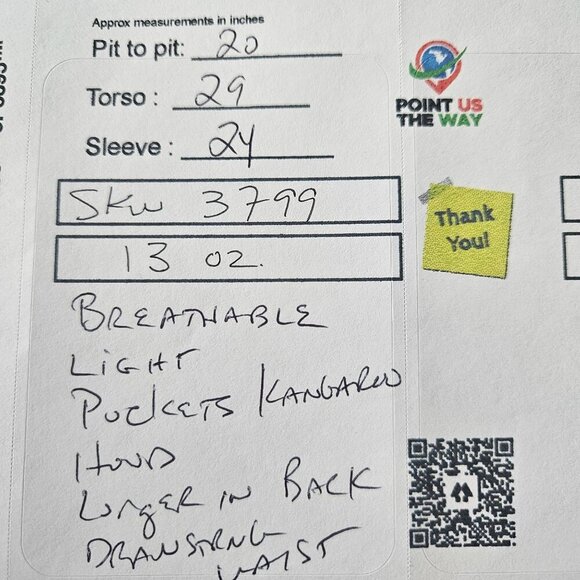 Approx measurements in inches
Pit to pit: 20
Torso : 29
Sleeve : 24
POINT US
THE WAY
SKU 3799
Thank
You!
13 oz.
BREATHABLE
LIGHT
POCKETS / KANGAROO
HOOD
LONGER IN BACK
DRAWSTRNG
WAIST